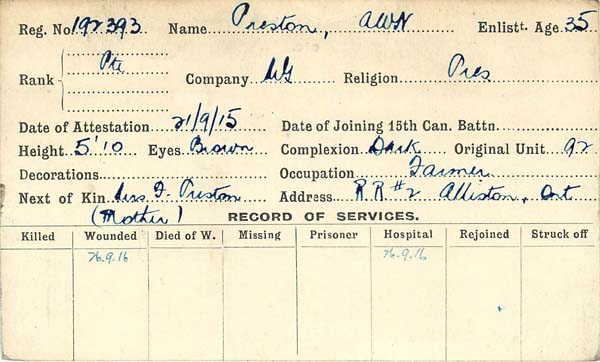 Reg. No. 192393 Name Preston, AWN Enlistt. Age 35
Rank Pte Company Religion Pres
Date of Attestation 21/9/15 Date of Joining 15th Can. Battn.
Height 5'10 Eyes Brown Complexion Dark Original Unit 92
Decorations Occupation Farmer
Next of Kin Preston Address R R #2 Alliston, Ont
(Mother) RECORD OF SERVICES.
Killed Wounded Died of W. Missing Prisoner Hospital Rejoined Struck off
26.9.16 26.9.16